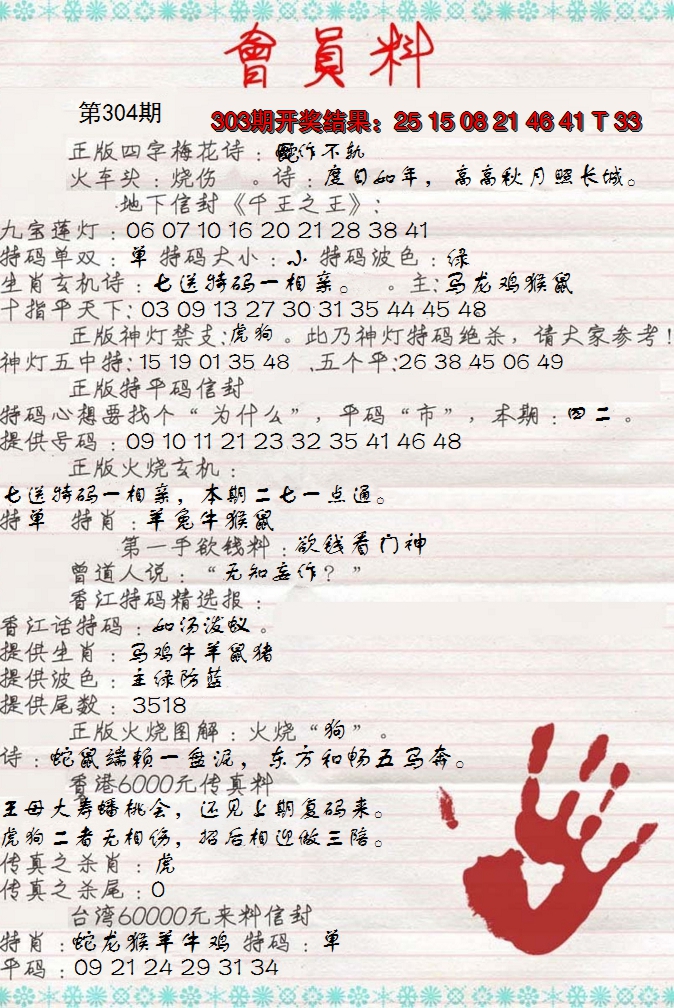 會員料
第304期
303期开奖结果：25 15 08 21 46 41 T 33
正版四字梅花诗：作不轨
火车头：烧伤 。诗：度日如年，高高秋月照长城。
地下信封《千王之王》：
九宝莲灯：06 07 10 16 20 21 28 38 41
特码单双：单 特码大小：小 特码波色：绿
生肖玄机诗：七送特码一相亲。 。主：马龙鸡猴鼠
十指平天下：03 09 13 27 30 31 35 44 45 48
正版神灯禁支：虎狗。此乃神灯特码绝杀，请大家参考！
神灯五中特：15 19 01 35 48 .五个平：26 38 45 06 49
正版特平码信封
特码心想要找个“为什么”，平码“市”，本期：四二。
提供号码：09 10 11 21 23 32 35 41 46 48
正版火烧玄机：
七送特码一相亲，本期二七一点通。
特单 特肖：羊兔牛猴鼠
第一手欲钱料：欲钱看门神
曾道人说：“无知妄作？”
香江特码精选报：
香江话特码：如汤泼蚁。
提供生肖：马鸡牛羊鼠猪
提供波色：主绿防蓝
提供尾数：3518
正版火烧图解：火烧“狗”。
诗：蛇鼠端赖一盘泥，东方和畅五马奔。
香港6000元传真料
王母大寿蟠桃会，还见上期复码来。
虎狗二者无相伤，招后相迎做三陪。
传真之杀肖：虎
传真之杀尾：0
台湾60000元来料信封
特肖：蛇龙猴羊牛鸡 特码：单
平码：09 21 24 29 31 34